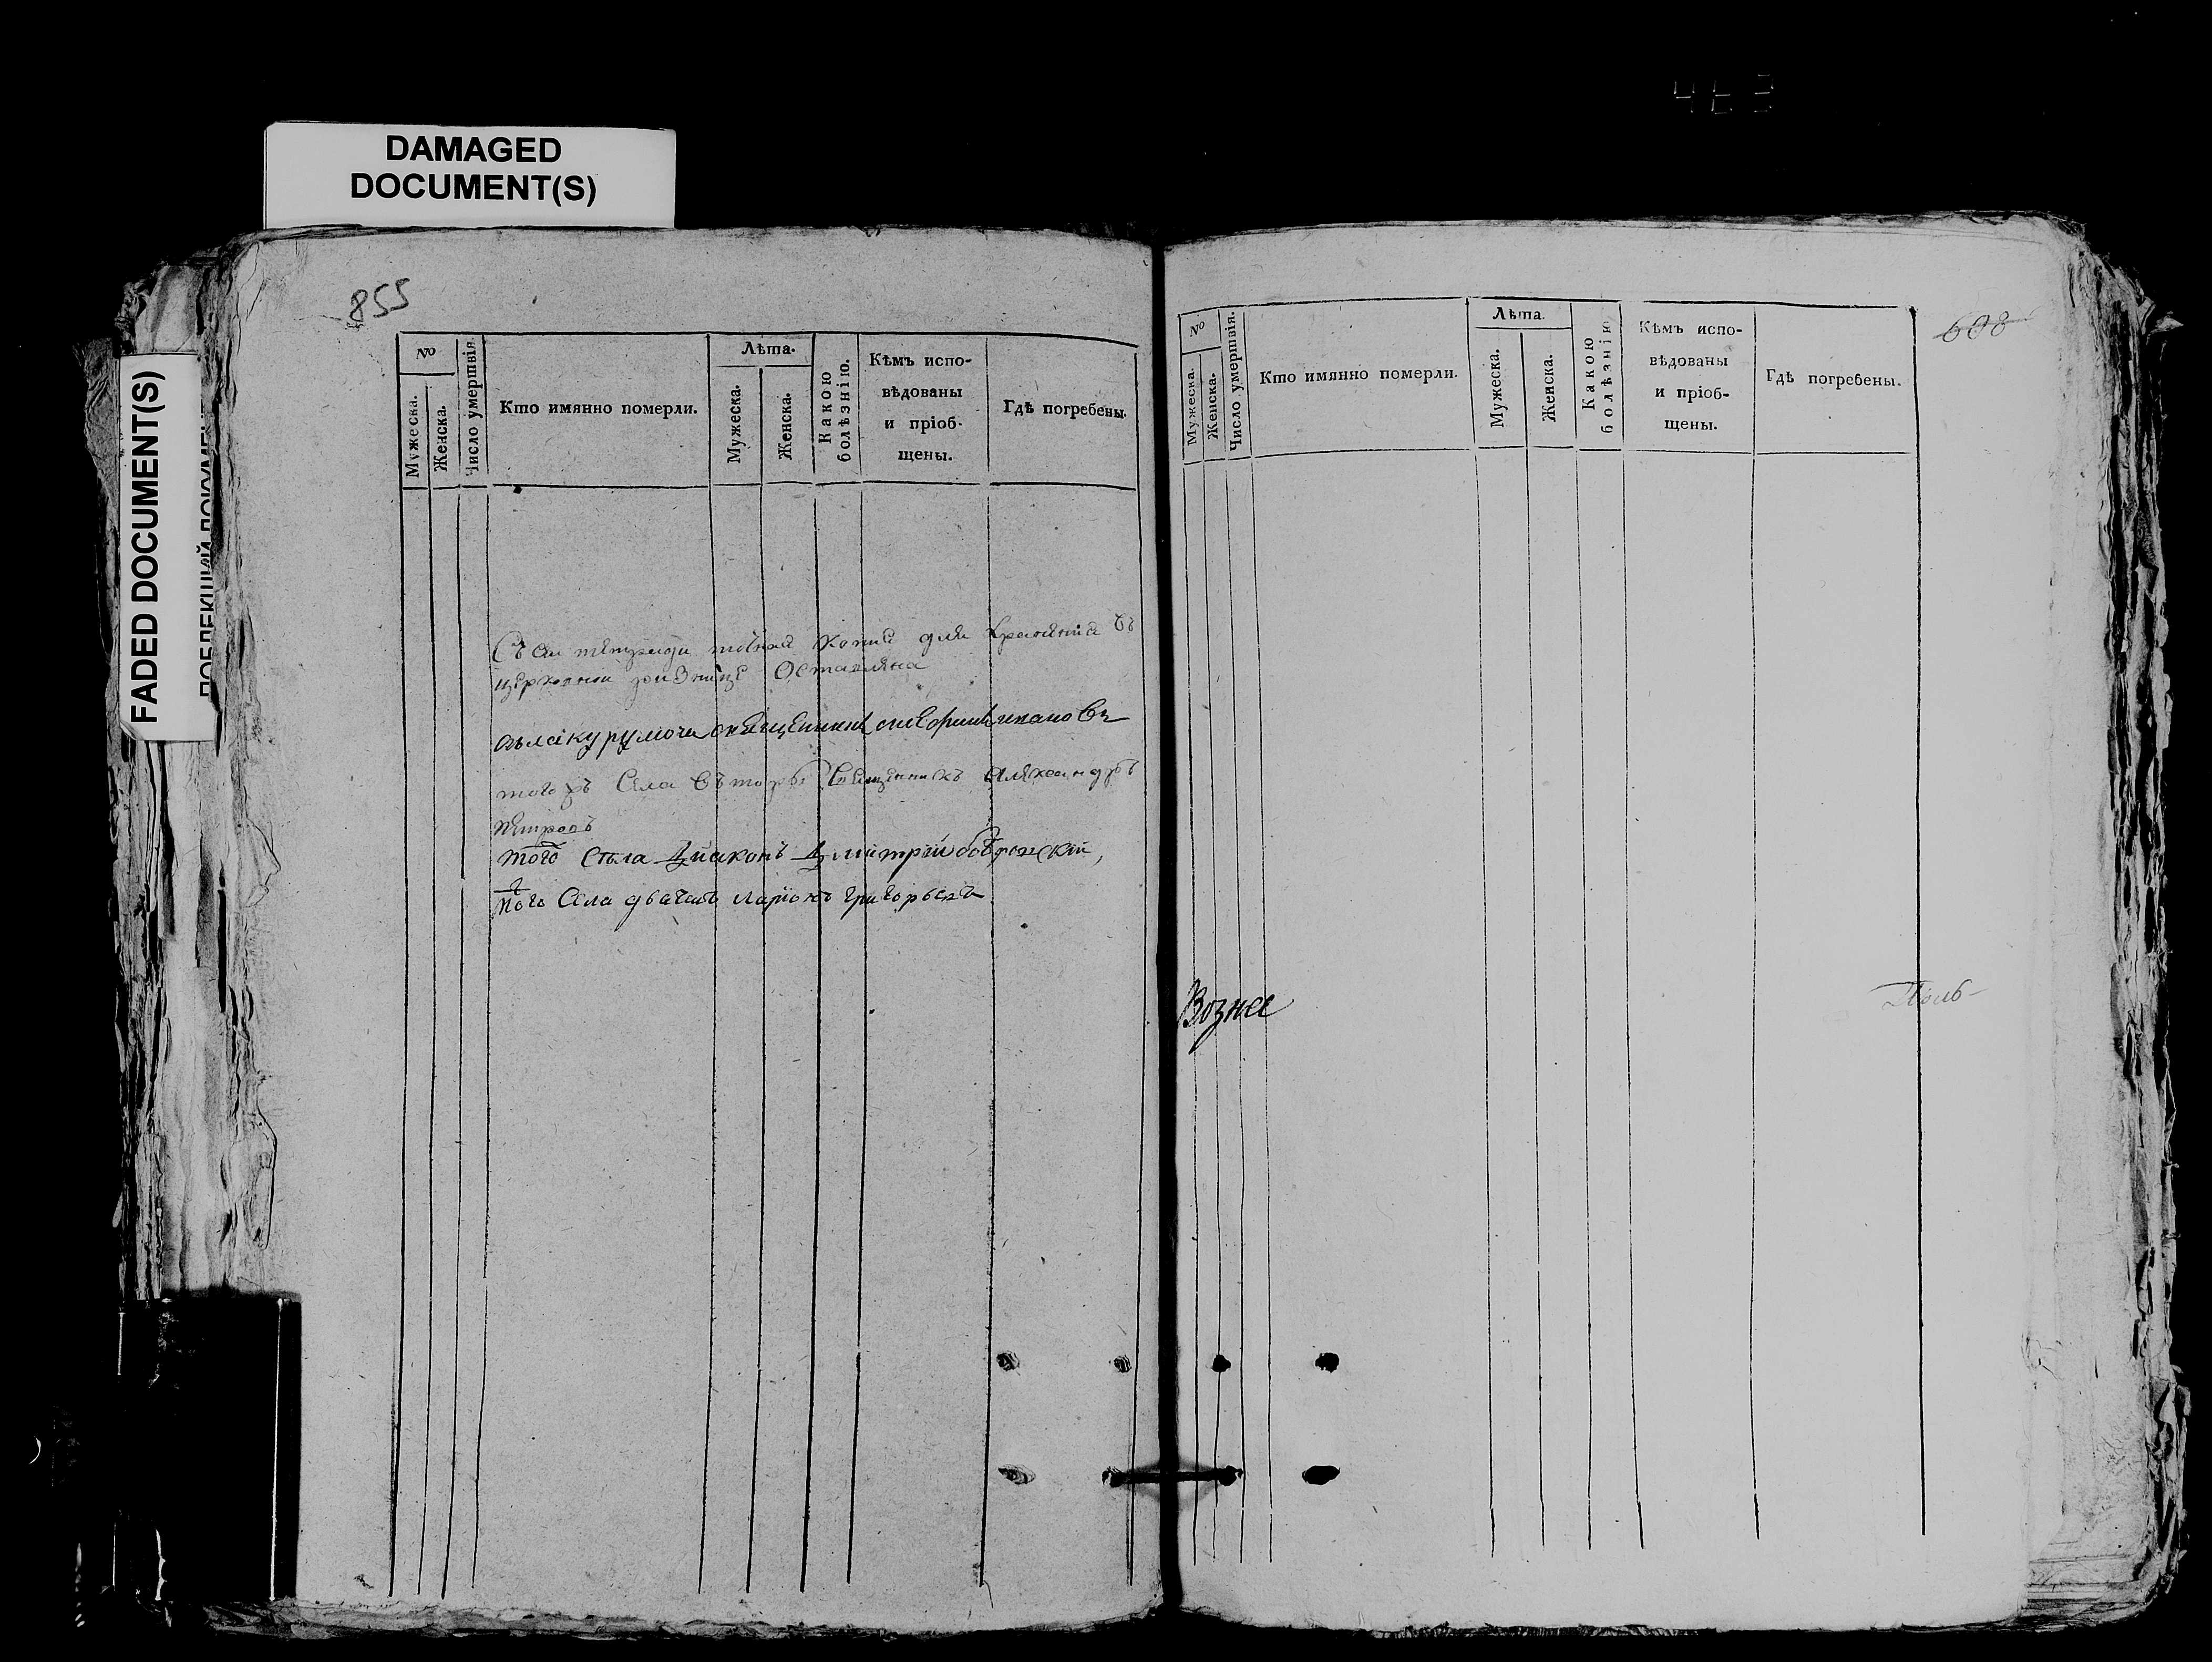 DAMAGED
DOCUMENT(S)
FADED DOCUMENT(S)
855
№
Мужеска.
Женска.
Число умертвія.
Кто имянно померли.
Лѣта.
Мужеска.
Женска.
Какою
болѣзнію.
Кѣмъ испо-
вѣдованы
и пріоб-
щены.
Гдѣ погребены.
точная Копия для храненія въ
церковной Оставлена
села курумоча священникъ ивановъ
тогожъ Села Вторы Священникъ Александръ
Петровъ
того Села Діаконъ Дмитрей
того Села дьячекъ Ларіонъ григорьевъ
608
№
Мужеска.
Женска.
Число умертвія.
Кто имянно померли.
Лѣта.
Мужеска.
Женска.
Какою
болѣзнію
Кѣмъ испо-
вѣдованы
и пріоб-
щены.
Гдѣ погребены.
Вознес